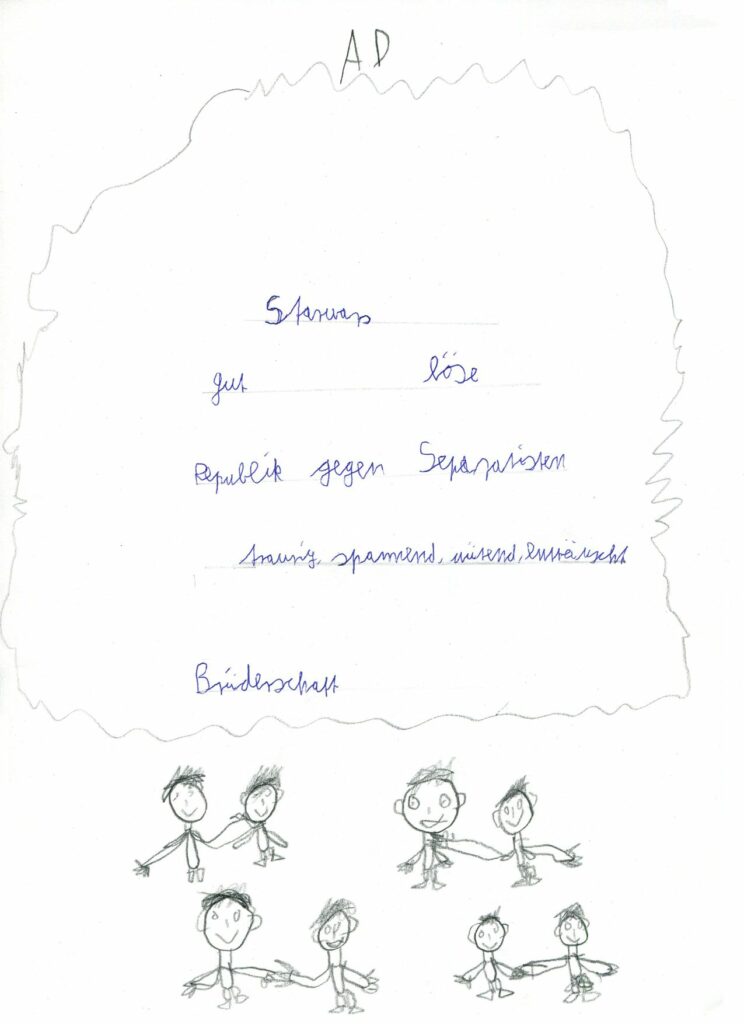 AD
Starwars
gut böse
Republik gegen Separatisten
traurig, spannend, wütend, enttäuscht
Brüderschaft